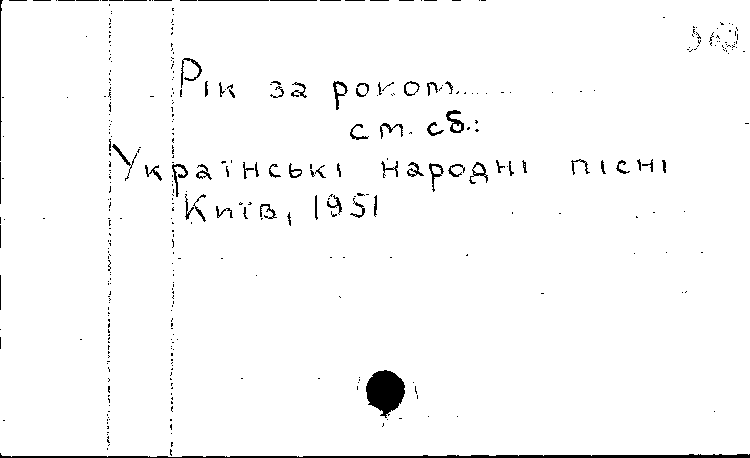 Рік за роком.....
см. сб.:
Українські народні пісні
Київ, 1951